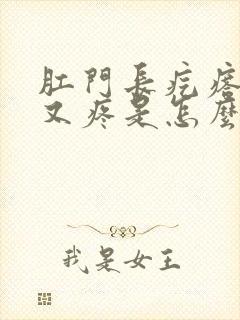 肛門長疙瘩
又疼是怎麼
我是女王